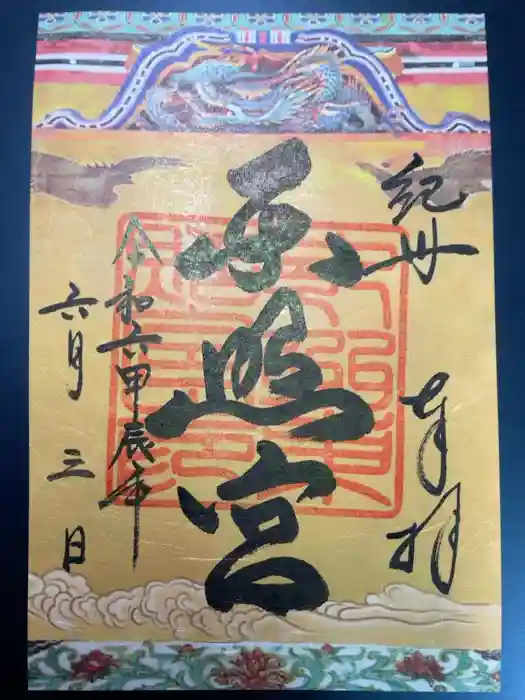 紀州
奉拝
東照宮
令和六甲辰年
六月三日